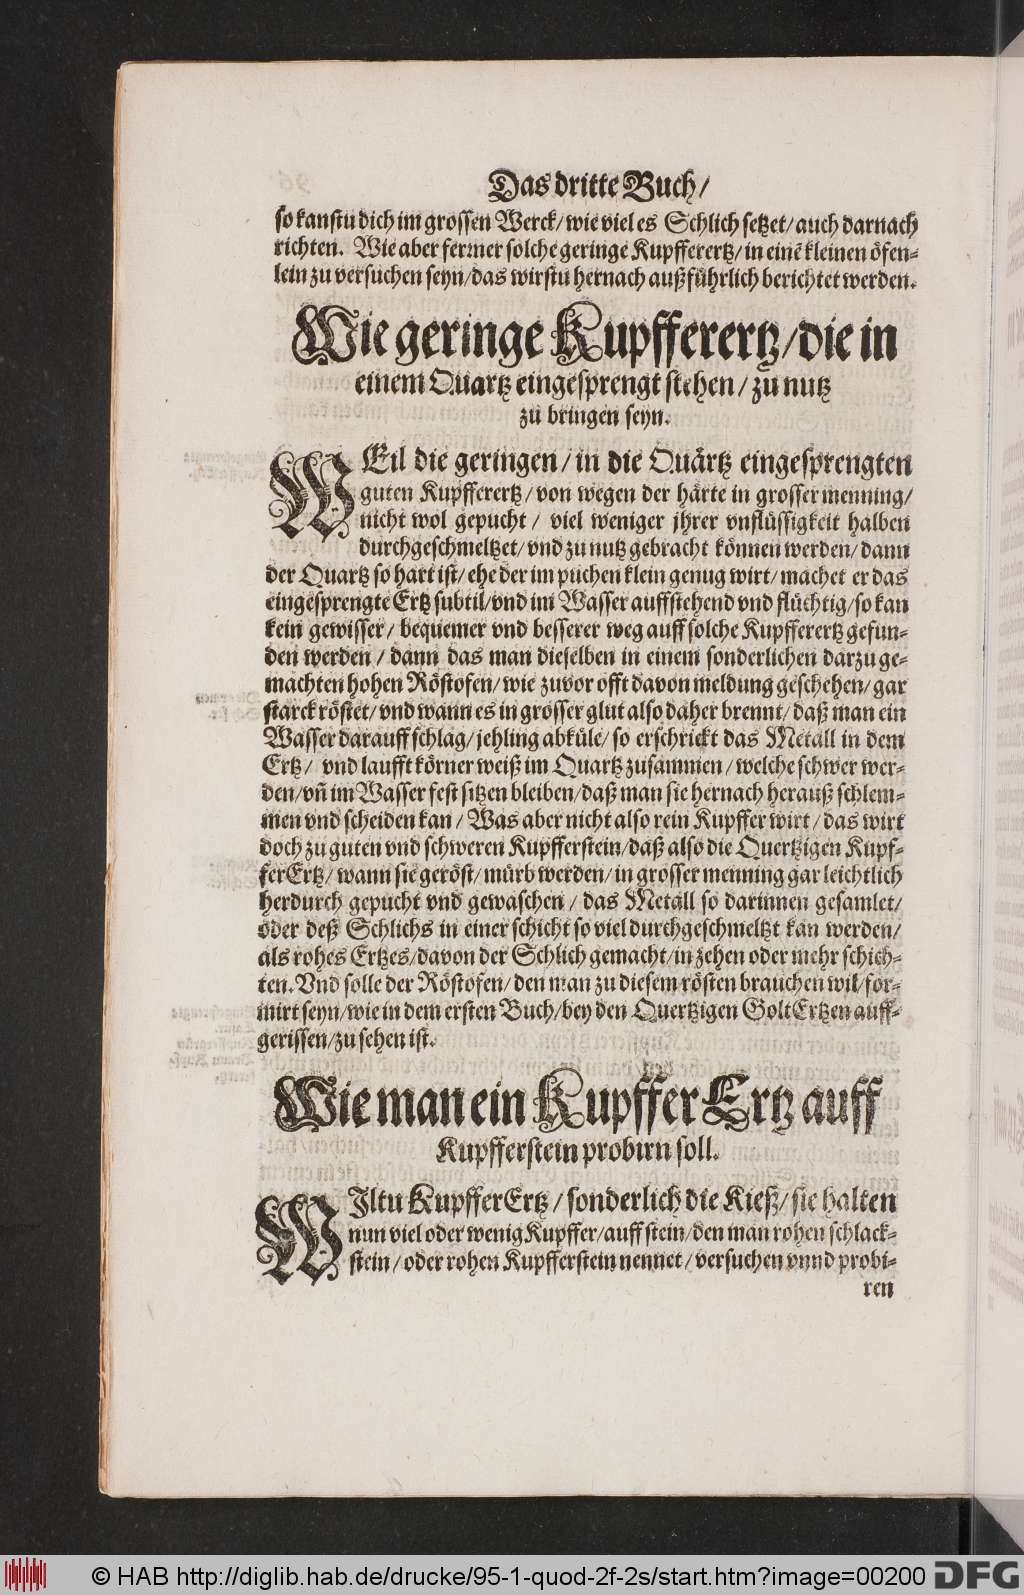 Das dritte Buch/
so kanstu dich im grossen Werck/ wie viel es Schlich setzet/ auch darnach
richten. Wie aber ferrner solche geringe Kupfferertz/ in einē kleinen öfen-
lein zu versuchen seyn/ das wirstu hernach außführlich berichtet werden.
Wie geringe Kupfferertz/ die in
einem Quartz eingesprengt stehen/ zu nutz
zu bringen seyn.
WEil die geringen/ in die Quärtz eingesprengten
guten Kupfferertz/ von wegen der härte in grosser menning/
nicht wol gepucht/ viel weniger jhrer vnflüssigkeit halben
durchgeschmeltzet/ vnd zu nutz gebracht können werden/ dann
der Quartz so hart ist/ ehe der im puchen klein genug wirt/ machet er das
eingesprengte Ertz subtil/ vnd im Wasser auffstehend vnd flüchtig/ so kan
kein gewisser/ bequemer vnd besserer weg auff solche Kupfferertz gefun-
den werden/ dann das man dieselben in einem sonderlichen darzu ge-
machten hohen Röstofen/ wie zuvor offt davon meldung geschehen/ gar
starck röstet/ vnd wann es in grosser glut also daher brennt/ daß man ein
Wasser darauff schlag/ jehling abküle/ so erschrickt das Metall in dem
Ertz/ vnd laufft körner weiß im Quartz zusammen/ welche schwer wer-
den/ vñ im Wasser fest sitzen bleiben/ daß man sie hernach herauß schlem-
men vnd scheiden kan/ Was aber nicht also rein Kupffer wirt/ das wirt
doch zu guten vnd schweren Kupfferstein/ daß also die Quertzigen Kupf-
fer Ertz/ wann sie geröst/ mürb werden/ in grosser menning gar leichtlich
herdurch gepucht vnd gewaschen/ das Metall so darinnen gesamlet/
oder deß Schlichs in einer schicht so viel durchgeschmeltzt kan werden/
als rohes Ertzes/ davon der Schlich gemacht/ in zehen oder mehr schich-
ten. Vnd solle der Röstofen/ den man zu diesem rösten brauchen wil/ for-
mirt seyn/ wie in dem ersten Buch/ bey den Quertzigen Golt Ertzen auff-
gerissen/ zu sehen ist.
Wie man ein Kupffer Ertz auff
Kupfferstein probirn soll.
WIltu Kupffer Ertz/ sonderlich die Kieß/ sie halten
nun viel oder wenig Kupffer/ auff stein/ den man rohen schlack-
stein/ oder rohen Kupfferstein nennet/ versuchen vnnd probi-
ren
© HAB http://diglib.hab.de/drucke/95-1-quod-2f-2s/start.htm?image=00200
DFG